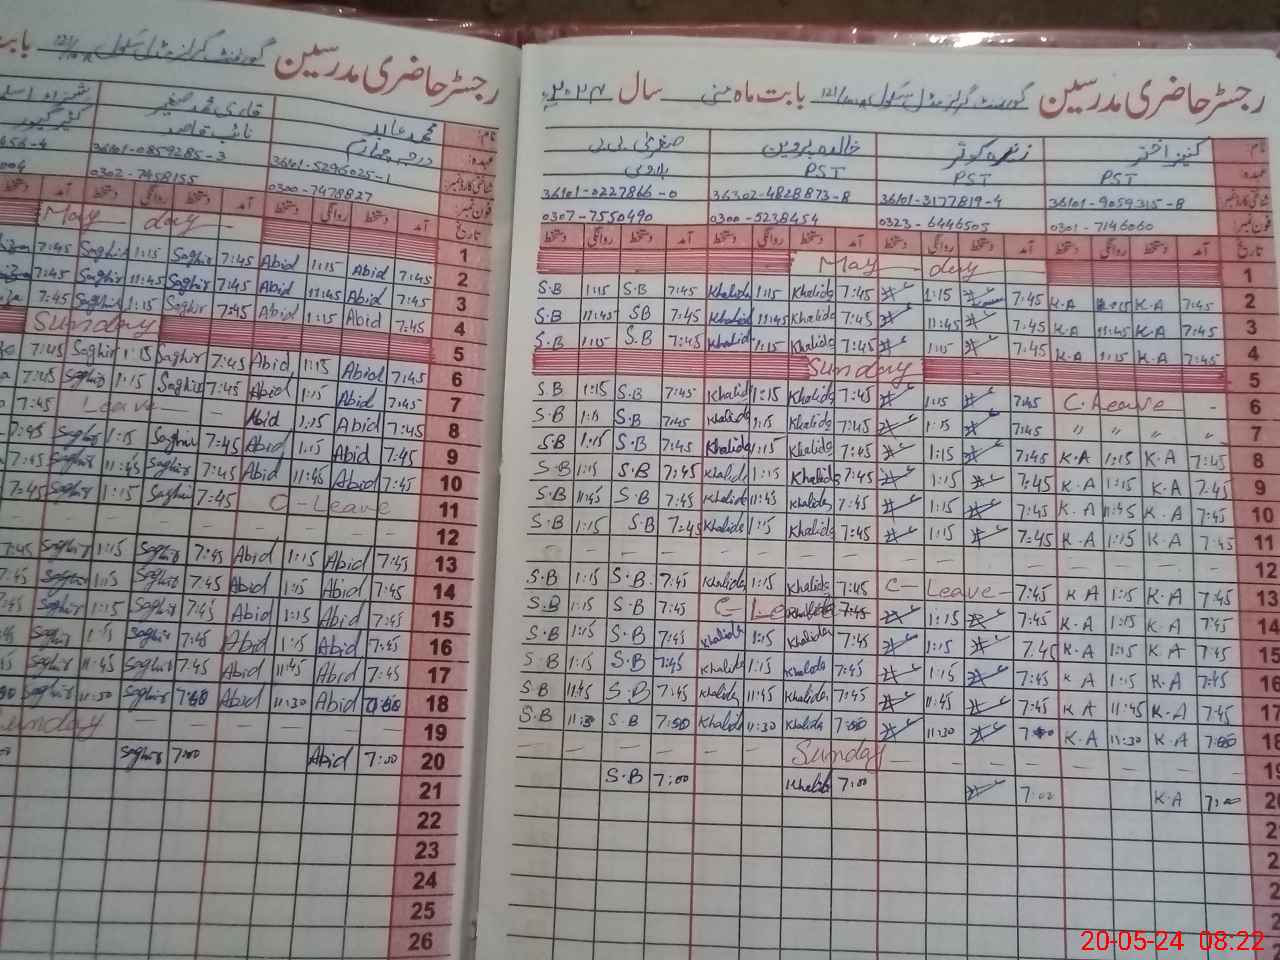 رجسٹر حاضری مدرسین گورنمنٹ گرلز مڈل سکول 121/10R بابت
نام: محمد عابد قاری محمد صغیر
عہدہ: درجہ چہارم نائب قاصد
شناختی کارڈ نمبر: 36101-5296025-1 36101-0859285-3 056-4
فون نمبر: 0300-7478827 0302-7458155 004
تاریخ آمد دستخط روانگی دستخط آمد دستخط روانگی دستخط آمد دستخط
1 May day
2 7:45 Abid 1:15 Abid 7:45 Saghir 1:15 Saghir 7:45
3 7:45 Abid 11:45 Abid 7:45 Saghir 11:45 Saghir 7:45
4 7:45 Abid 1:15 Abid 7:45 Saghir 1:15 Saghir 7:45
5 Sunday
6 7:45 Abid 1:15 Abid 7:45 Saghir 1:15 Saghir 7:45
7 7:45 Abid 1:15 Abid 7:45 Saghir 1:15 Saghir 7:45
8 7:45 Abid 1:15 Abid Leave — — 7:45
9 7:45 Abid 1:15 Abid 7:45 Saghir 1:15 Saghir 7:45
10 7:45 Abid 11:45 Abid 7:45 Saghir 11:45 Saghir 7:45
11 C-Leave 7:45 Saghir 1:15 Saghir 7:45
12 — — — — — — — — —
13 7:45 Abid 1:15 Abid 7:45 Saghir 1:15 Saghir 7:45
14 7:45 Abid 1:15 Abid 7:45 Saghir 1:15 Saghir 7:45
15 7:45 Abid 1:15 Abid 7:45 Saghir 1:15 Saghir 7:45
16 7:45 Abid 1:15 Abid 7:45 Saghir 1:15 Saghir 7:45
17 7:45 Abid 11:45 Abid 7:45 Saghir 11:45 Saghir
18 Abid 11:30 Abid Saghir 11:30 Saghir
19 — — — — — — Sunday
20 7:00 Abid 7:00 Saghir
21
22
23
24
25
26
رجسٹر حاضری مدرسین گورنمنٹ گرلز مڈل سکول 121/10R بابت ماہ مئی سال ۲۰۲۴
نام: کنیز اختر زہرہ کوثر خالدہ پروین صغریٰ بی بی
عہدہ: PST PST PST
شناختی کارڈ نمبر: 36101-9059315-8 36101-3177819-4 36302-4828873-8 36101-0227866-0
فون نمبر: 0301-7146060 0323-6446505 0300-5238454 0307-7550490
تاریخ آمد دستخط روانگی دستخط آمد دستخط روانگی دستخط آمد دستخط روانگی دستخط آمد دستخط روانگی دستخط
1 May day
2 7:45 K.A 1:15 K.A 7:45 1:15 7:45 Khalida 1:15 Khalida 7:45 S.B 1:15 S.B
3 7:45 K.A 11:45 K.A 7:45 11:45 7:45 Khalida 11:45 Khalida 7:45 SB 11:45 S.B
4 7:45 K.A 1:15 K.A 7:45 1:15 7:45 Khalida 1:15 Khalida 7:45 S.B 1:15 S.B
5 Sunday
6 C.Leave - 7:45 1:15 7:45 Khalida 1:15 Khalida 7:45 S.B 1:15 S.B
7 〃 〃 〃 〃 7:45 1:15 7:45 Khalida 1:15 Khalida 7:45 S.B 1:15 S.B
8 7:45 K.A 1:15 K.A 1:15 7:45 Khalida 1:15 Khalida 7:45 S.B 1:15 S.B
9 7:45 K.A 1:15 K.A 7:45 1:15 7:45 Khalida 1:15 Khalida 7:45 S.B 1:15 S.B
10 7:45 K.A 11:45 K.A 7:45 1:15 7:45 Khalida 11:45 Khalida 7:45 S.B 11:45 S.B
11 7:45 K.A 1:15 K.A 7:45 1:15 7:45 Khalida 1:15 Khalida 7:45 S.B 1:15 S.B
12 — — — — — — — — — — — — —
13 7:45 K.A 1:15 K.A 7:45 C-Leave- 7:45 Khalida 1:15 Khalida 7:45 S.B 1:15 S.B
14 7:45 K.A 1:15 K.A 7:45 1:15 7:45 C-Le 7:45 S.B 1:15 S.B
15 7:45 K.A 1:15 K.A 7:45 1:15 7:45 Khalida 1:15 Khalida 7:45 S.B 1:15 S.B
16 7:45 K.A 1:15 K.A 7:45 1:15 7:45 Khalida 1:15 Khalida 7:45 S.B 1:15 S.B
17 7:45 K.A 11:45 K.A 7:45 11:45 7:45 Khalida 11:45 Khalida 7:45 S.B 11:45 S.B
18 K.A 11:30 K.A 11:30 Khalida 11:30 Khalida S.B 11:30 S.B
19 — — — — — — Sunday — — — —
20 7:00 K.A 7:00 7:00 Khalida 7:00 S.B
20-05-24 08:22